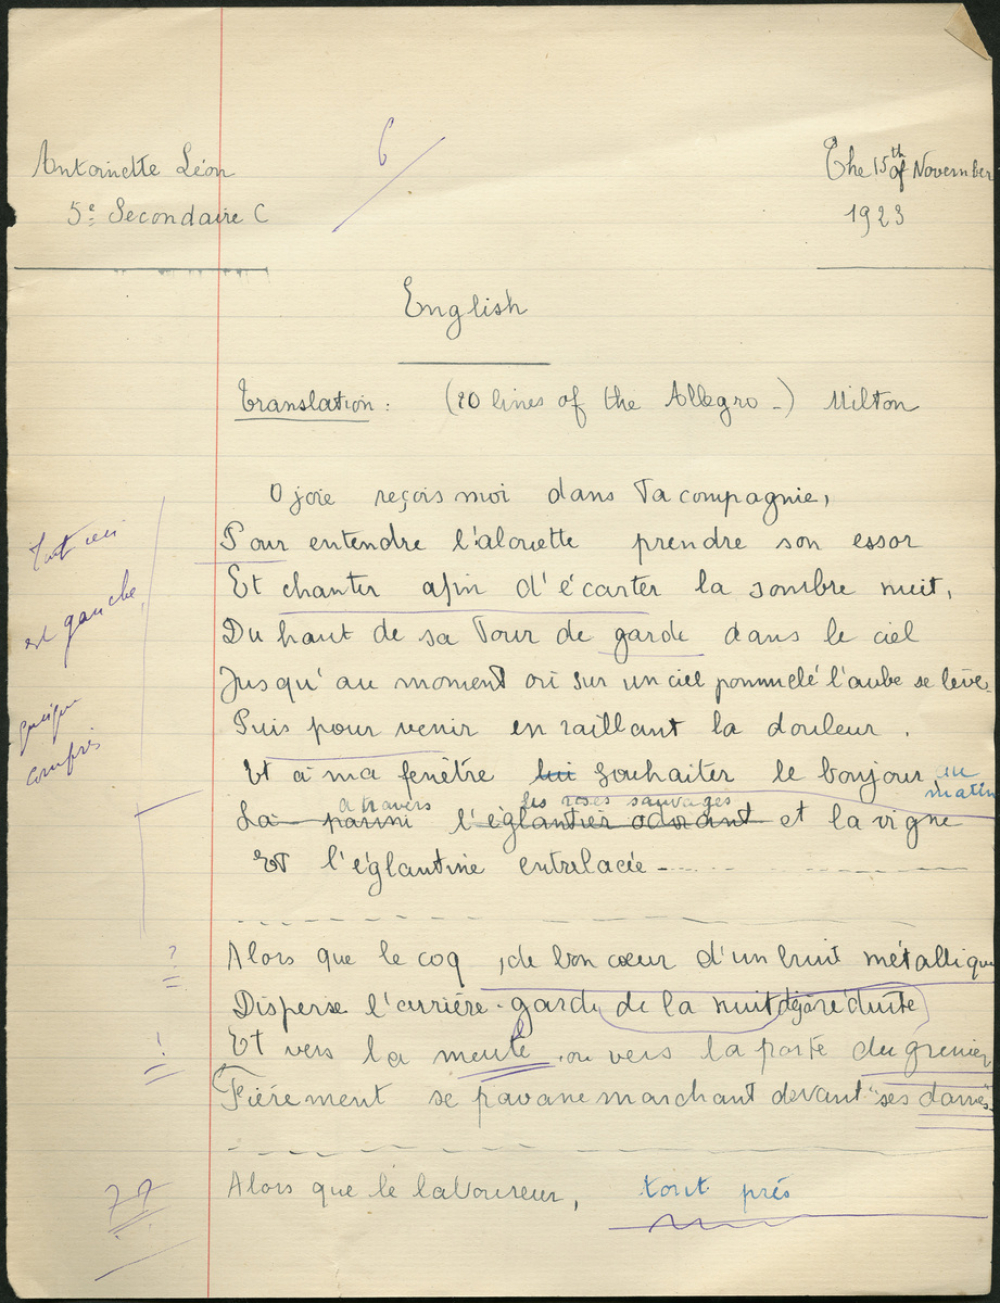 Antoinette Léon
5e Secondaire C
6
The 15th of November
1923
English
Translation: (20 lines of the Allegro -) Milton
O joie reçois moi dans Ta compagnie,
Pour entendre l'alouette prendre son essor
Et chanter afin d'écarter la sombre nuit,
Du haut de sa Tour de garde dans le ciel
Jusqu'au moment où sur un ciel pommelé l'aube se lève.
Puis pour venir en raillant la douleur.
Et à ma fenêtre lui souhaiter le bonjour au
matin
à travers les roses sauvages
La parmi l'églantier odorant et la vigne
ET l'églantine entrelacée -
Tout ceci
est gauche,
quoique
compris
Alors que le coq, de bon cœur d'un bruit métallique
?
Disperse l'arrière-garde de la nuit déjà réduite
ET vers la meute, ou vers la porte du grenier
!
Fièrement se pavane marchant devant "ses dames".
Alors que le laboureur, tout près
??